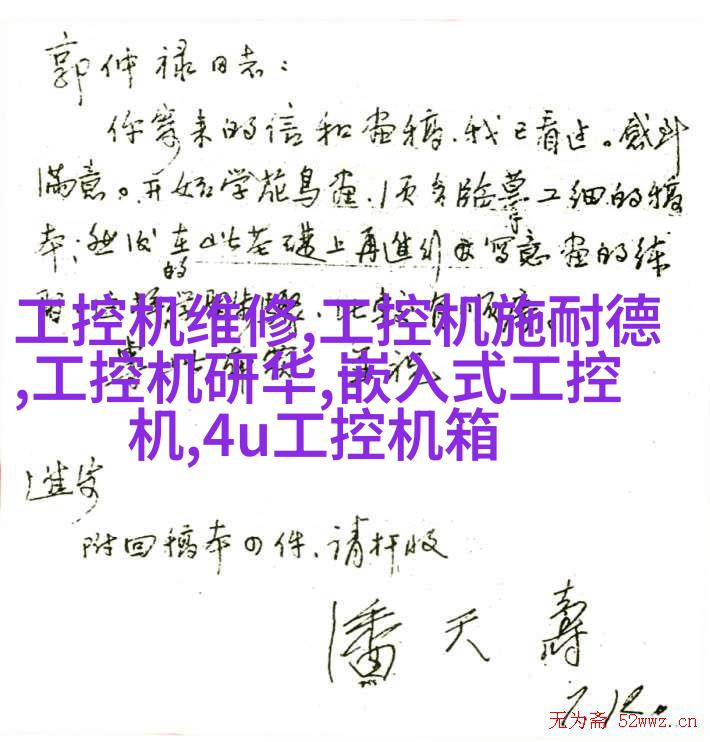 郭仲禄同志：
你寄来的信和画稿，我已看过。感到
满意。开始学花鸟画，须多临摹工细的稿
本；然后在此基础上再进行写意画的练
的
工控机维修,工控机施耐德
,工控机研华,嵌入式工控
机,4u工控机箱
进安
附回稿本四件、请检收
潘天寿
7/12.
无为斋 52wwz.cn